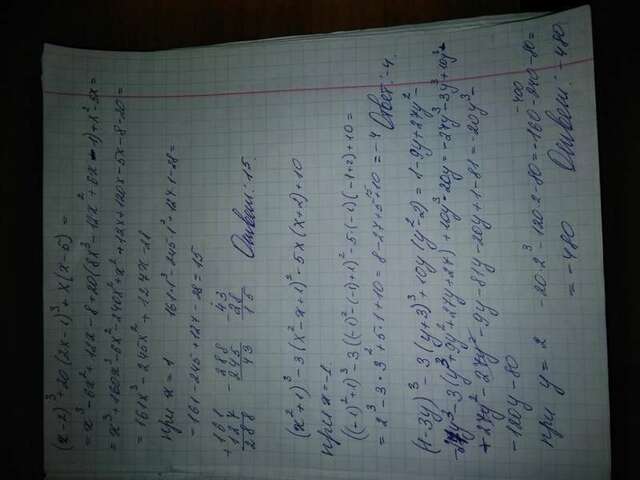 (x-2)³+20(2x-1)³+x(x-5) =
= x³-6x²+12x-8+20(8x³-12x²+6x-1)+x²-5x=
= x³+160x³-6x²-240x²+x²+12x+120x-5x-8-20=
= 161x³-245x²+127x-28
при x=1 161·1³-245·1²+127·1-28=
= 161-245+127-28=15
+161
127
288
-288
245
43
-43
28
15
Ответ: 15.
(x²+1)³-3(x²-x+1)²-5x(x+2)+10
при x=-1.
((-1)²+1)³-3((-1)²-(-1)+1)²-5(-1)(-1+2)+10=
= 2³-3·3²+5·1+10=8-27+5+10=-4 Ответ: -4.
(1-3y)³-3(y+3)³+10y(y²-2)=1-9y+27y²-
-27y³-3(y³+9y²+27y+27)+10y³-20y=-27y³-3y³+10y³
+27y²-27y²-9y-81y-20y+1-81=-20y³-
-120y-80
при y=2 -20·2³-120·2-80=-160-240-80=
-400
=-480 Ответ: -480